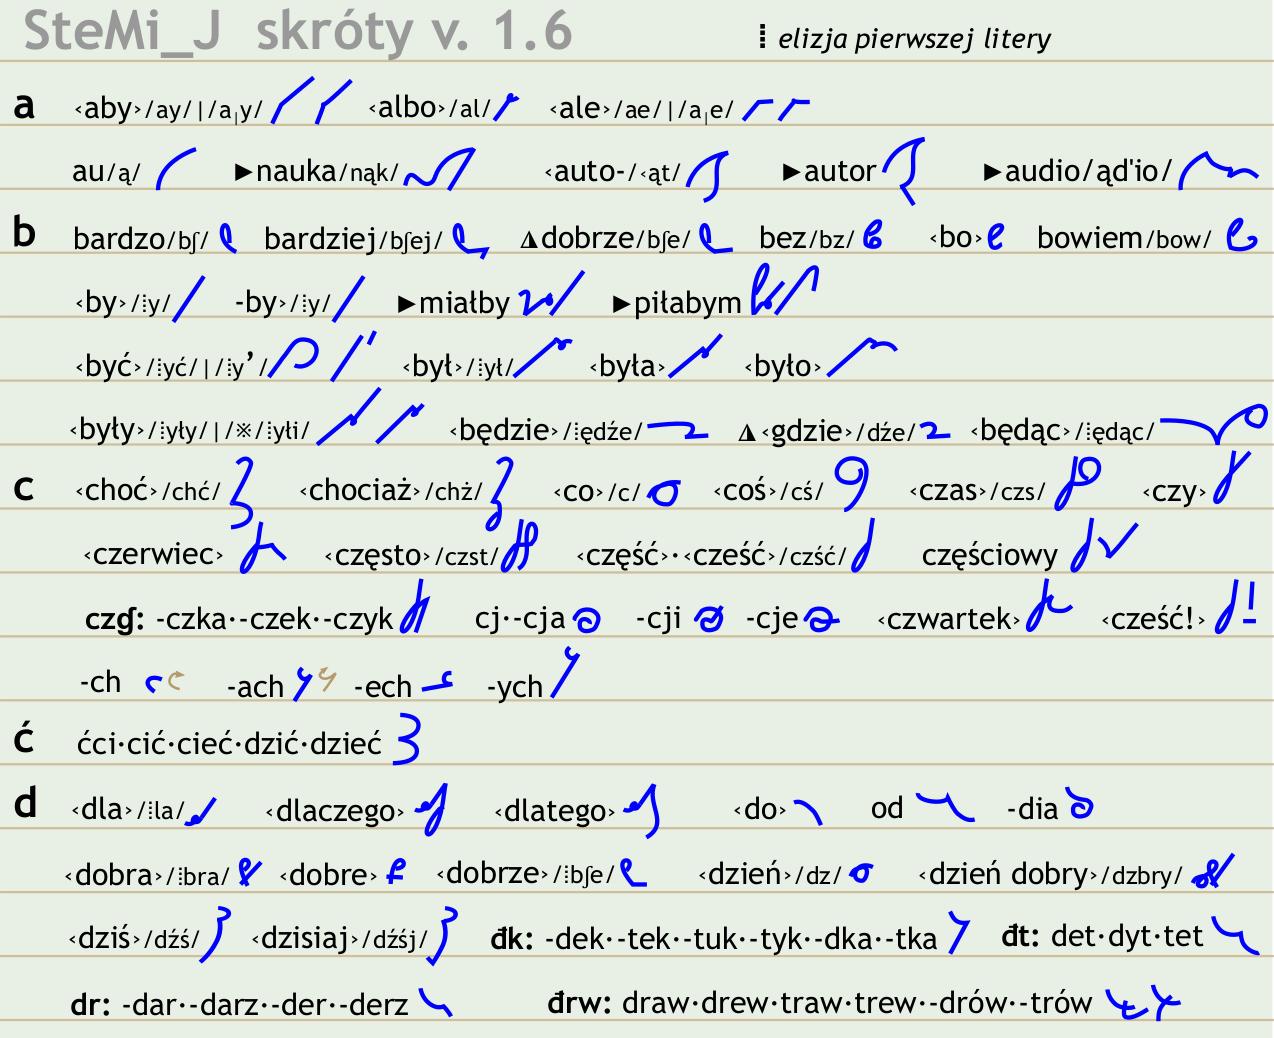 SteMi_J skróty v. 1.6 ⁞ elizja pierwszej litery
a ‹aby›/ay/|/a|y/ ‹albo›/al/ ‹ale›/ae/|/a|e/
au/ą/ ►nauka/nąk/ ‹auto-/‹ąt/ ►autor ►audio/ąd'io/
b bardzo/bʃ/ bardziej/bʃej/ ◮dobrze/bʃe/ bez/bz/ ‹bo› bowiem/bow/
‹by›/⁞y/ -by›/⁞y/ ►miałby ►piłabym
‹być›/⁞yć/|/⁞y’/ ‹był›/⁞ył/ ‹była› ‹było›
‹były›/⁞yły/|/※/⁞yłi/ ‹będzie›/⁞ędźe/ ◮‹gdzie›/dźe/ ‹będąc›/⁞ędąc/
c ‹choć›/chć/ ‹chociaż›/chż/ ‹co›/c/ ‹coś›/cś/ ‹czas›/czs/ ‹czy›
‹czerwiec› ‹często›/czst/ ‹część›·‹cześć›/czść/ częściowy
czɠ: -czka·-czek·-czyk cj·-cja -cji -cje ‹czwartek› ‹cześć!›
-ch -ach -ech -ych
ć ćci·cić·cieć·dzić·dzieć
d ‹dla›/⁞la/ ‹dlaczego› ‹dlatego› ‹do› od -dia
‹dobra›/⁞bra/ ‹dobre› ‹dobrze›/⁞bʃe/ ‹dzień›/dz/ ‹dzień dobry›/dzbry/
‹dziś›/dźś/ ‹dzisiaj›/dźśj/ đk: -dek·-tek·-tuk·-tyk·-dka·-tka đt: det·dyt·tet
dr: -dar·-darz·-der·-derz đrw: draw·drew·traw·trew·-drów·-trów